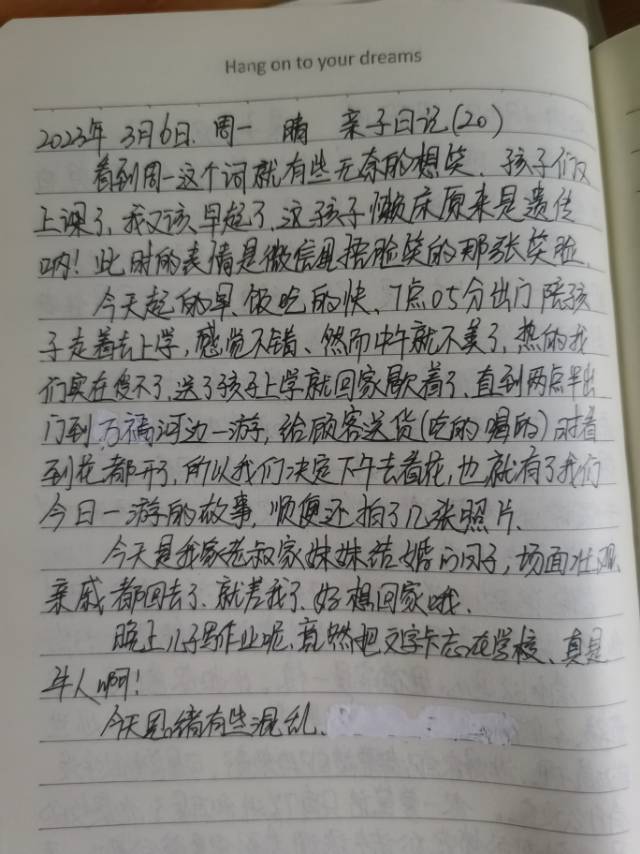 Hang on to your dreams
2023年 3月6日. 周一 晴 亲子日记(20)
看到周一这个词就有些无奈的想笑. 孩子们又
上课了, 我又该早起了. 这孩子懒床原来是遗传
呐! 此时的表情是微信里捂脸笑的那张笑脸.
今天起的早、饭吃的快、7点05分出门陪孩
子走着去上学, 感觉不错、然而中午就不美了, 热的我
们实在受不了, 送了孩子上学就回家歇着了, 直到两点半出
门到万福河边一游, 给顾客送货(吃的喝的)时看
到花都开了, 所以我们决定下午去看花, 也就有了我们
今日一游的故事, 顺便还拍了几张照片、
今天是我家老叔家妹妹结婚的日子, 场面壮观
亲戚都回去了、就差我了、好想回家哦.
晚上儿子写作业呢、竟然把文字卡忘在学校、真是
牛人啊!
今天思绪有些混乱.